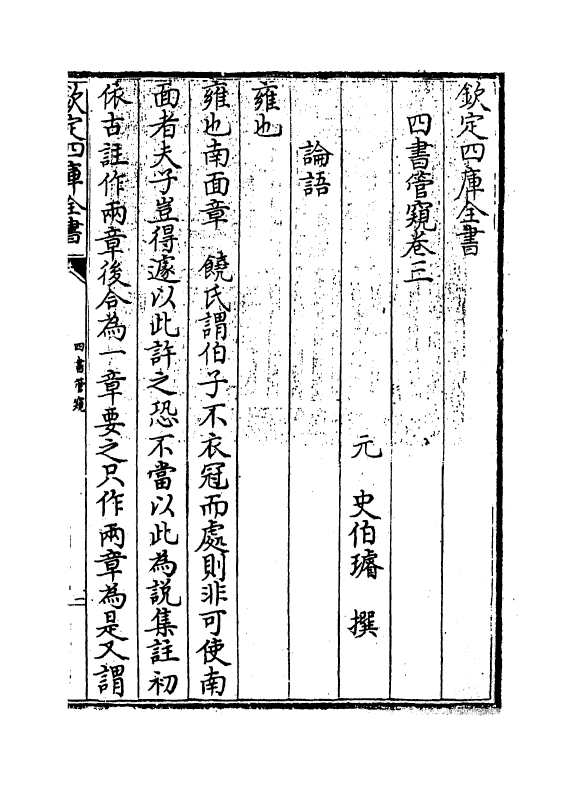 欽定四庫全書
四書管窺卷三
元 史伯璿 撰
論語
雍也
雍也南面章 饒氏謂伯子不衣冠而處則非可使南
面者夫子豈得遽以此許之恐不當以此為説集註初
依古註作兩章後合為一章要之只作兩章為是又謂
欽定四庫全書
四書管窺